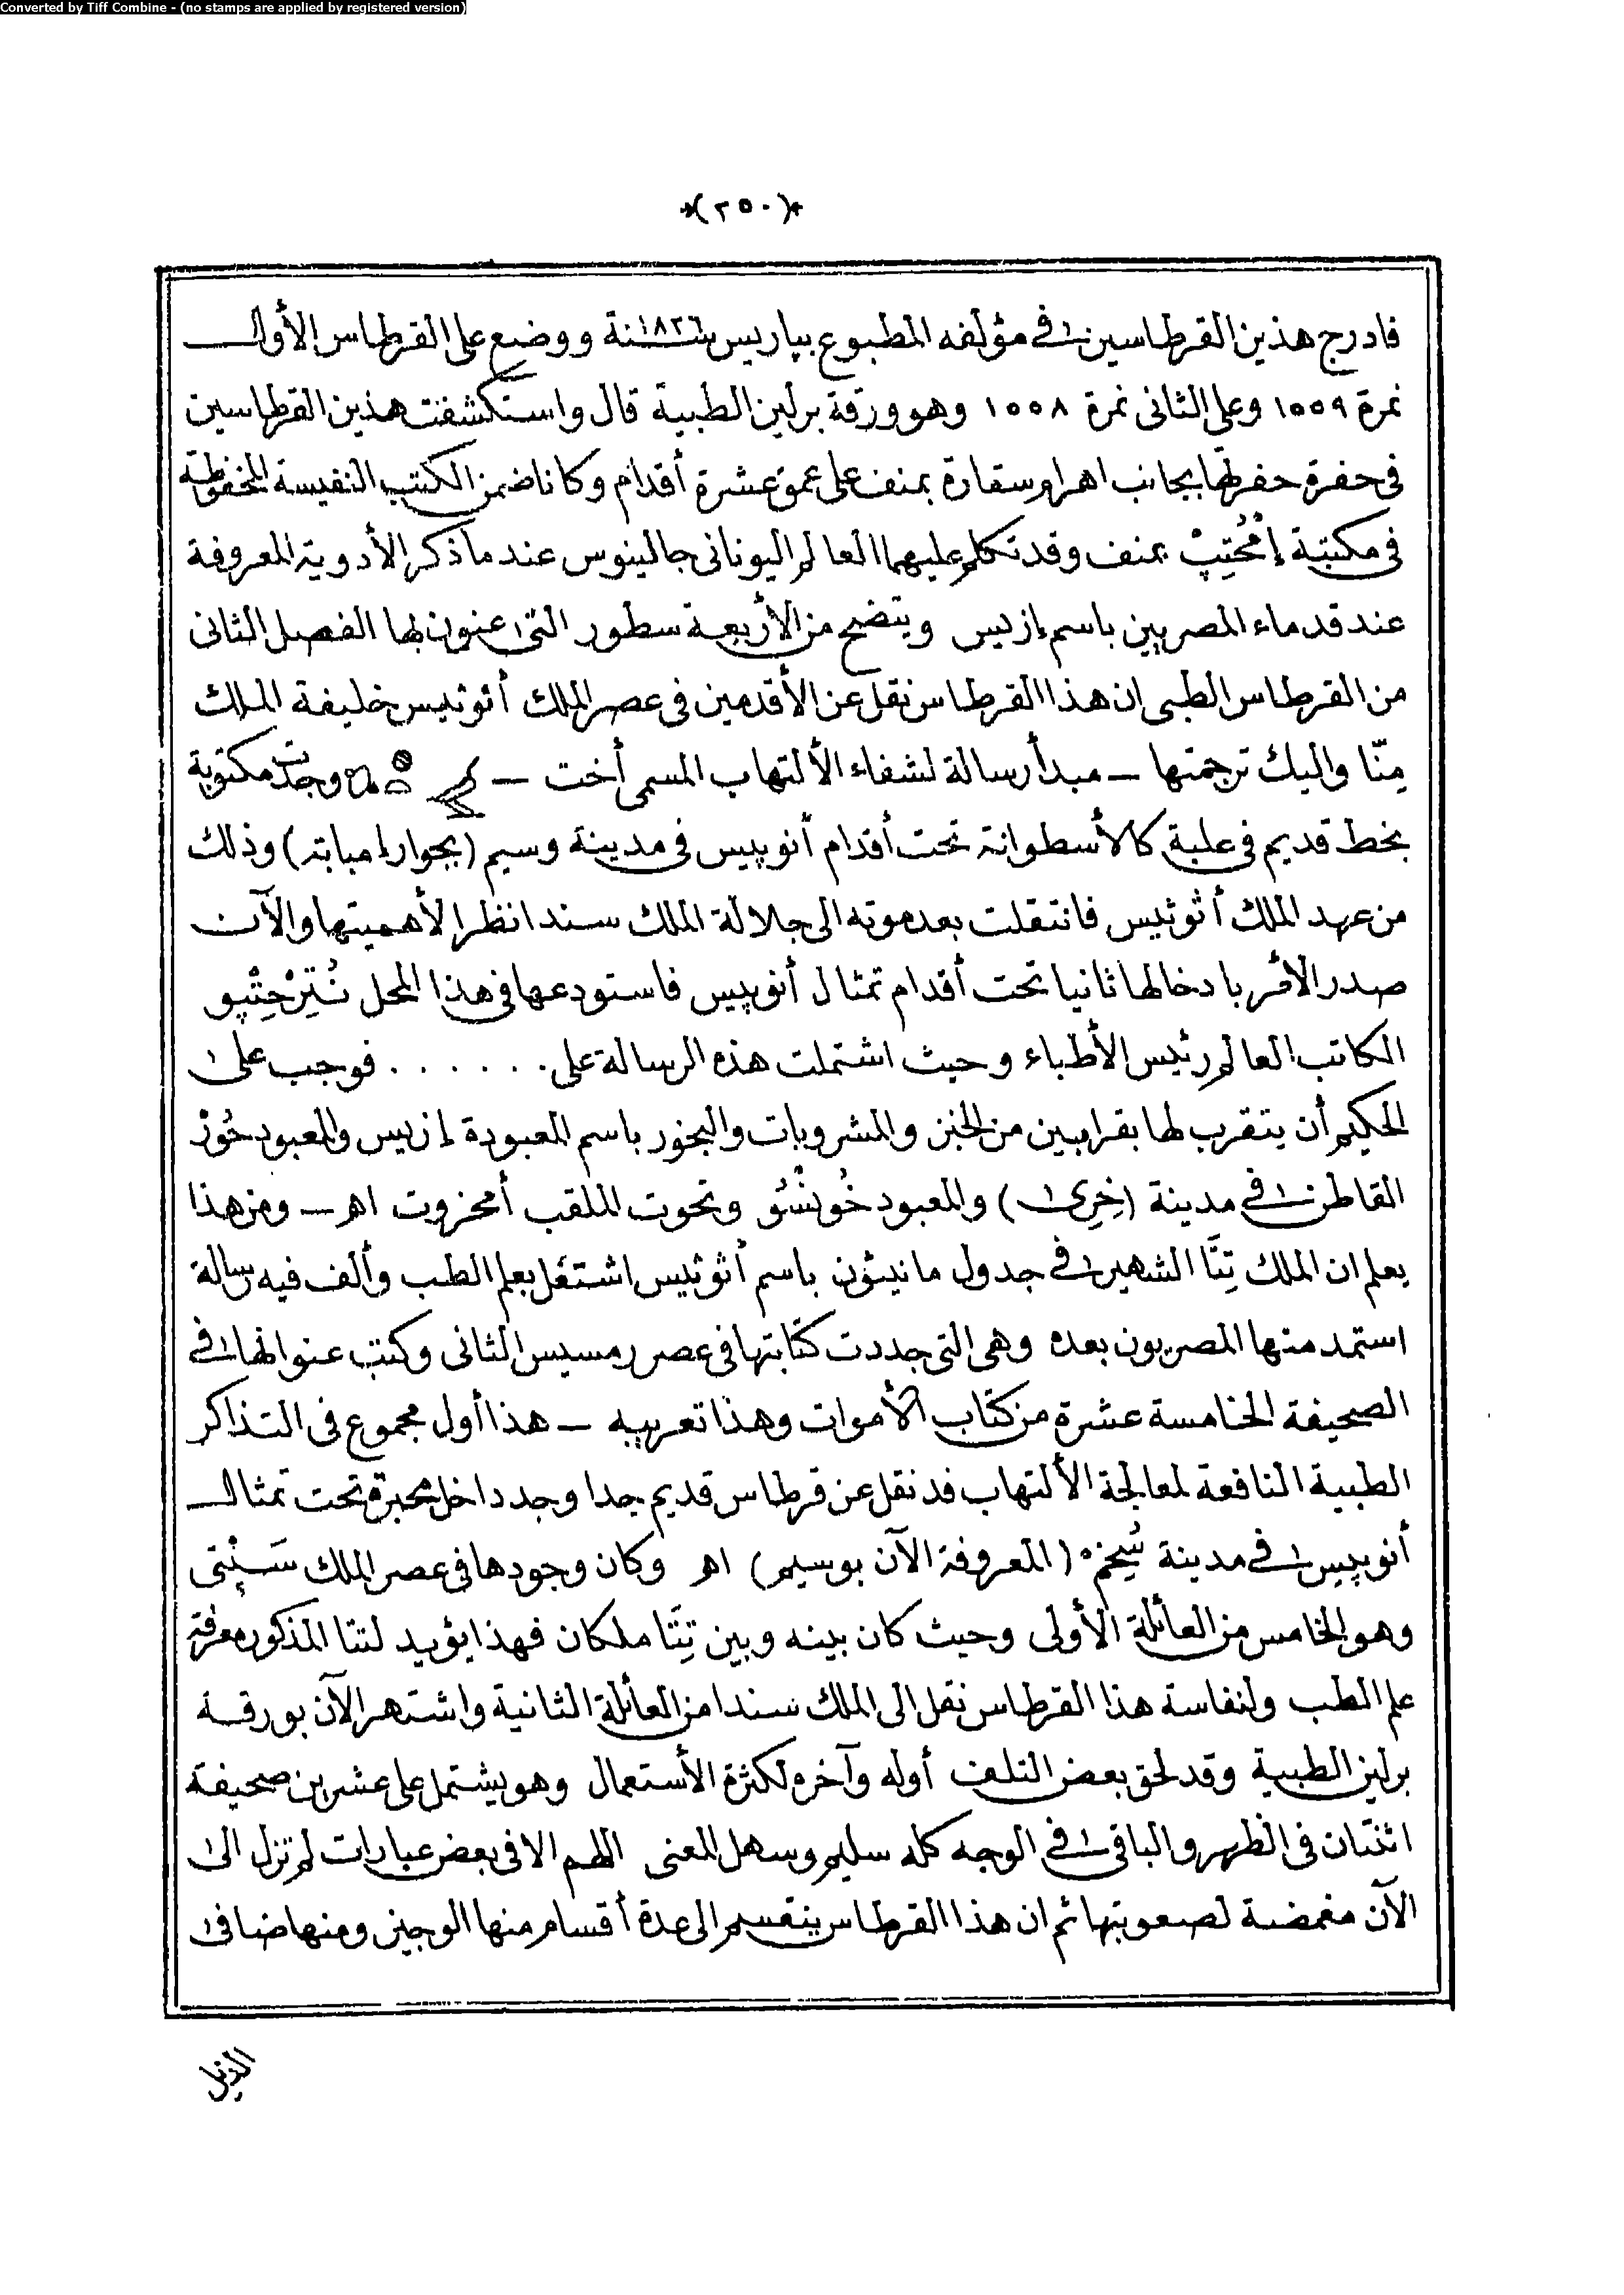 Converted by Tiff Combine - (no stamps are applied by registered version)
*(٢٥٠)*
فادرج هذين القرطاسين فى مؤلفه المطبوع بپاريس سنة ١٨٢٦ ووضع على القرطاس الأول
نمرة ١٥٥٩ وعلى الثانى نمرة ١٥٥٨ وهو ورقة برلين الطبية قال واستكشفت هذين القرطاسين
فى حفرة حفرتها بجانب اهرام سقارة بمنف على عمق عشرة أقدام وكانا ضمن الكتب النفيسة المحفوظة
فى مكتبة إمْحُتِپْ بمنف وقد تكلم عليهما العالم اليونانى جالينوس عند ما ذكر الأدوية المعروفة
عند قدماء المصريين باسم إزيس ويتضح من الأربعة سطور التى عنون لها الفصل الثانى
من القرطاس الطبى ان هذا القرطاس نقل عن الأقدمين فى عصر الملك أثوثيس خليفة الملك
مِنّا واليك ترجمتها — مبدأ رسالة لشفاء الألتهاب المسمى أخت — وجدت مكتوبة
بخط قديم فى علبة كالأسطوانة تحت أقدام أنوبيس فى مدينة وسيم (بجوار إمبابة) وذلك
من عهد الملك أثوثيس فانتقلت بعد موته الى جلالة الملك سندا نظرا لأهميتها والآن
صدر الأمر بادخالها ثانيا تحت أقدام تمثال أنوبيس فاستودعها فى هذا المحل نُتِرْحِتْپو
الكاتب العالم رئيس الأطباء وحيث اشتملت هذه الرسالة على . . . . . . فوجب على
الحكيم أن يتقرب لها بقرابين من الخبز والمشروبات والبخور باسم المعبودة إزيس والمعبود حُورْ
القاطن فى مدينة (خِرِى) والمعبود خُونْسُو وتحوت الملقب أمخروت اهـ — ومن هذا
يعلم ان الملك تِتَّا الشهير فى جدول مانيثون باسم أثوثيس اشتغل بعلم الطب وألف فيه رسالة
استمد منها المصريون بعده وهى التى جددت كتابتها فى عصر رمسيس الثانى وكتب عنوانها فى
الصحيفة الخامسة عشرة من كتاب الأموات وهذا تعريبه — هذا أول مجموع فى التذاكر
الطبية النافعة لمعالجة الألتهاب قد نقل عن قرطاس قديم جدا وجد داخل محبرة تحت تمثال
أنوبيس فى مدينة (المعروفة الآن بوسيم) اهـ وكان وجودها فى عصر الملك سَپْتى
وهو الخامس من العائلة الأولى وحيث كان بينه وبين تِتَا ملكان فهذا يؤيد لتتا المذكور معرفة
علم الطب ولنفاسة هذا القرطاس نقل الى الملك سندا من العائلة الثانية واشتهر الآن بورقة
برلين الطبية وقد لحق بعض التلف أوله وآخره لكثرة الأستعمال وهو يشتمل على عشرين صحيفة
اثنتان فى الظهر والباقى فى الوجه كله سليم وسهل المعنى اللهم الا فى بعض عبارات لم تزل الى
الآن مغمضة لصعوبتها ثم ان هذا القرطاس ينقسم الى عدة أقسام منها الوجيز ومنها ضافى
الذيل